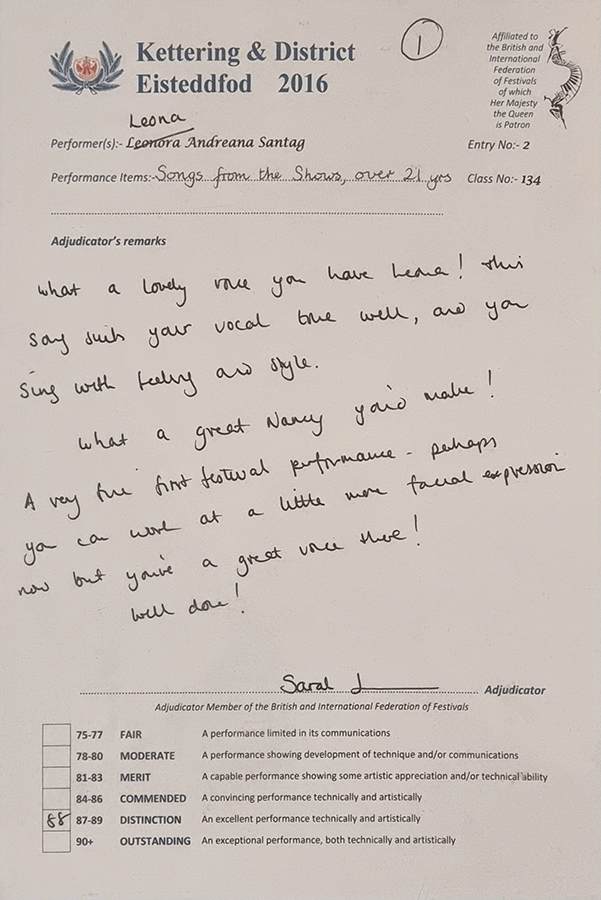 Kettering & District
Eisteddfod 2016
1
Affiliated to
the British and
International
Federation
of Festivals
of which
Her Majesty
the Queen
is Patron
Leona
Performer(s):- Leonora Andreana Santag
Entry No:- 2
Performance Items:- Songs from the Shows, over 21 yrs
Class No:- 134
Adjudicator's remarks
What a lovely voice you have Leona! This
song suits your vocal tone well, and you
sing with feeling and style.
What a great Nancy you'd make!
A very fine 'first festival performance - perhaps
you can work at a little more facial expression
now but you've a great voice there!
Well done!
Adjudicator
Adjudicator Member of the British and International Federation of Festivals
75-77 FAIR A performance limited in its communications
78-80 MODERATE A performance showing development of technique and/or communications
81-83 MERIT A capable performance showing some artistic appreciation and/or technical ability
84-86 COMMENDED A convincing performance technically and artistically
88 87-89 DISTINCTION An excellent performance technically and artistically
90+ OUTSTANDING An exceptional performance, both technically and artistically